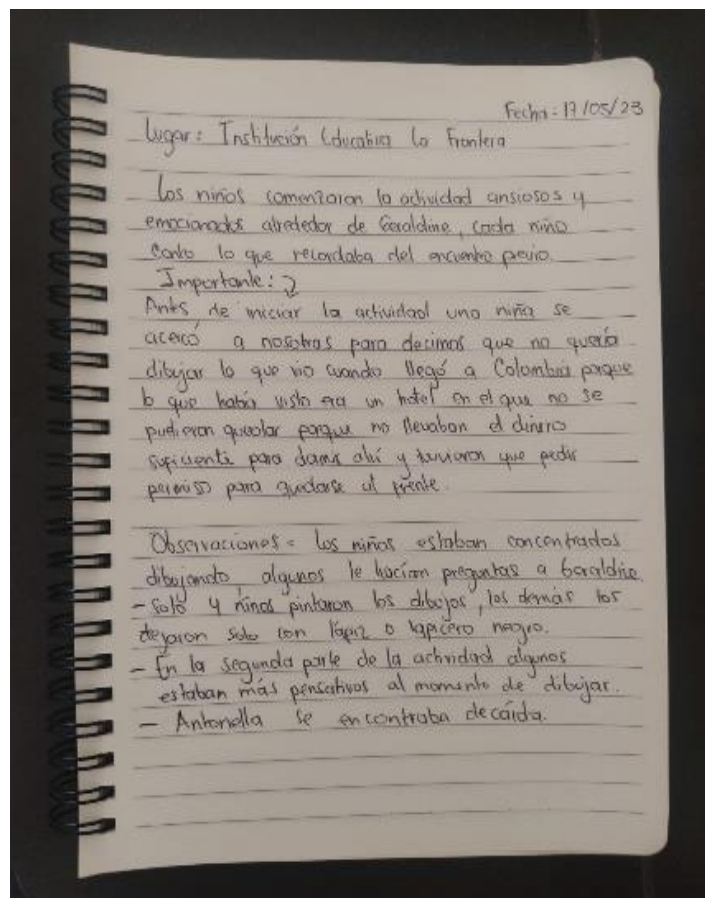 Fecha: 17/05/23
Lugar: Institución Educativa La Frontera
Los niños comenzaron la actividad ansiosos y
emocionados alrededor de Geraldine, cada niño
conto lo que recordaba del encuentro previo.
Importante:
Antes de iniciar la actividad una niña se
acercó a nosotras para decirnos que no quería
dibujar lo que vio cuando llegó a Colombia porque
lo que había visto era un hotel en el que no se
pudieron quedar porque no llevaban el dinero
suficiente para dormir ahí y tuvieron que pedir
permiso para quedarse al frente.
Observaciones = Los niños estaban concentrados
dibujando, algunos le hacían preguntas a Geraldine
- Solo 4 niños pintaron los dibujos, los demás los
dejaron solo con lápiz o lapicero negro.
- En la segunda parte de la actividad algunos
estaban más pensativos al momento de dibujar.
- Antonella se encontraba decaída.